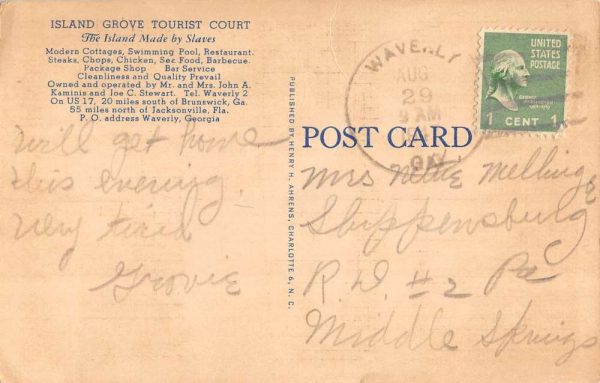 ISLAND GROVE TOURIST COURT
The Island Made by Slaves
Modern Cottages, Swimming Pool, Restaurant.
Steaks, Chops, Chicken, Sea Food, Barbecue.
Package Shop Bar Service
Cleanliness and Quality Prevail
Owned and operated by Mr. and Mrs. John A.
Kaminis and Joe C. Stewart. Tel. Waverly 2
On US 17, 20 miles south of Brunswick, Ga.
55 miles north of Jacksonville, Fla.
P. O. address Waverly, Georgia
will get home
this evening.
very tired
Grovie
PUBLISHED BY HENRY H. AHRENS, CHARLOTTE 6, N. C.
WAVERLY
AUG
29
9 AM
GA.
UNITED
STATES
POSTAGE
1 CENT 1
POST CARD
Mrs Nettie
Shippensburg
R.D. #2 Pa
Middle Springs